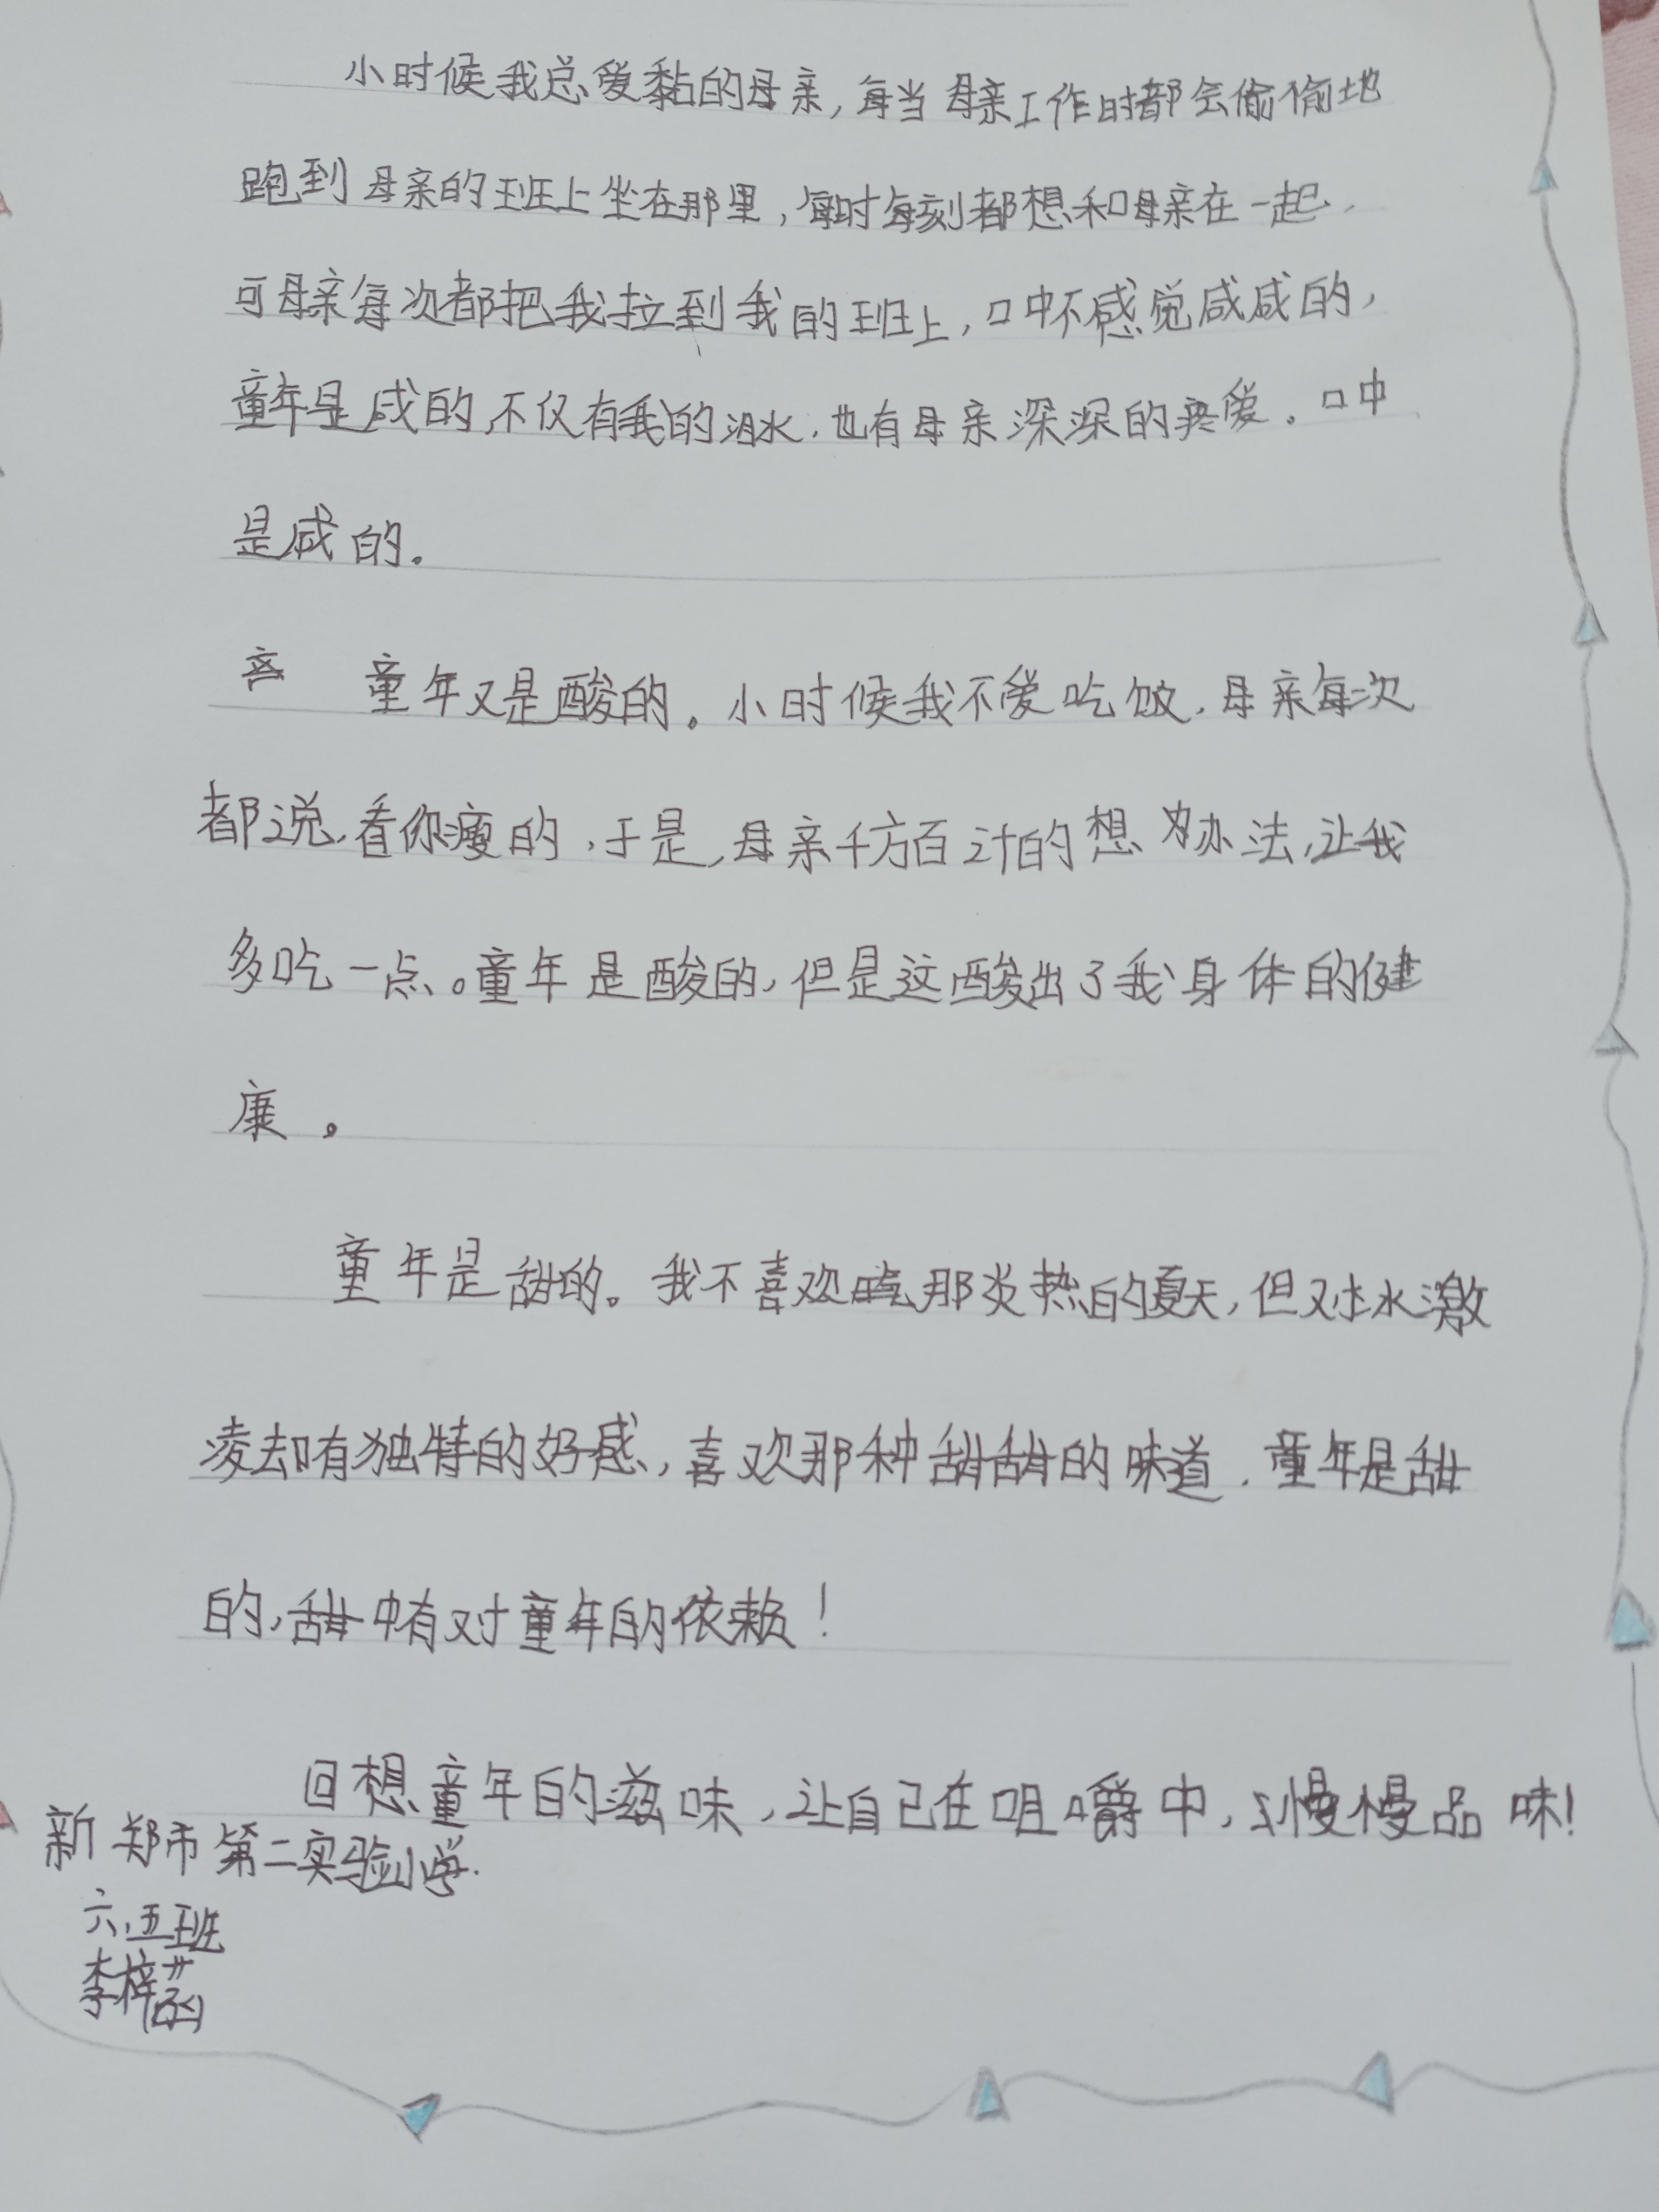 小时候我总爱黏的母亲，每当母亲工作时都会偷偷地
跑到母亲的班上坐在那里，每时每刻都想和母亲在一起，
可母亲每次都把我拉到我的班上，口中不感觉咸咸的，
童年是咸的，不仅有我的泪水，也有母亲深深的疼爱。口中
是咸的。
童年又是酸的。小时候我不爱吃饭，母亲每次
都说，看你瘦的，于是，母亲千方百计的想办法，让我
多吃一点。童年是酸的，但是这酸出了我身体的健
康。
童年是甜的。我不喜欢那炎热的夏天，但对冰激
凌却有独特的好感，喜欢那种甜甜的味道，童年是甜
的，甜中有对童年的依赖！
回想童年的滋味，让自己在咀嚼中，慢慢品味！
新郑市第二实验小学.
六.五班
李梓菡